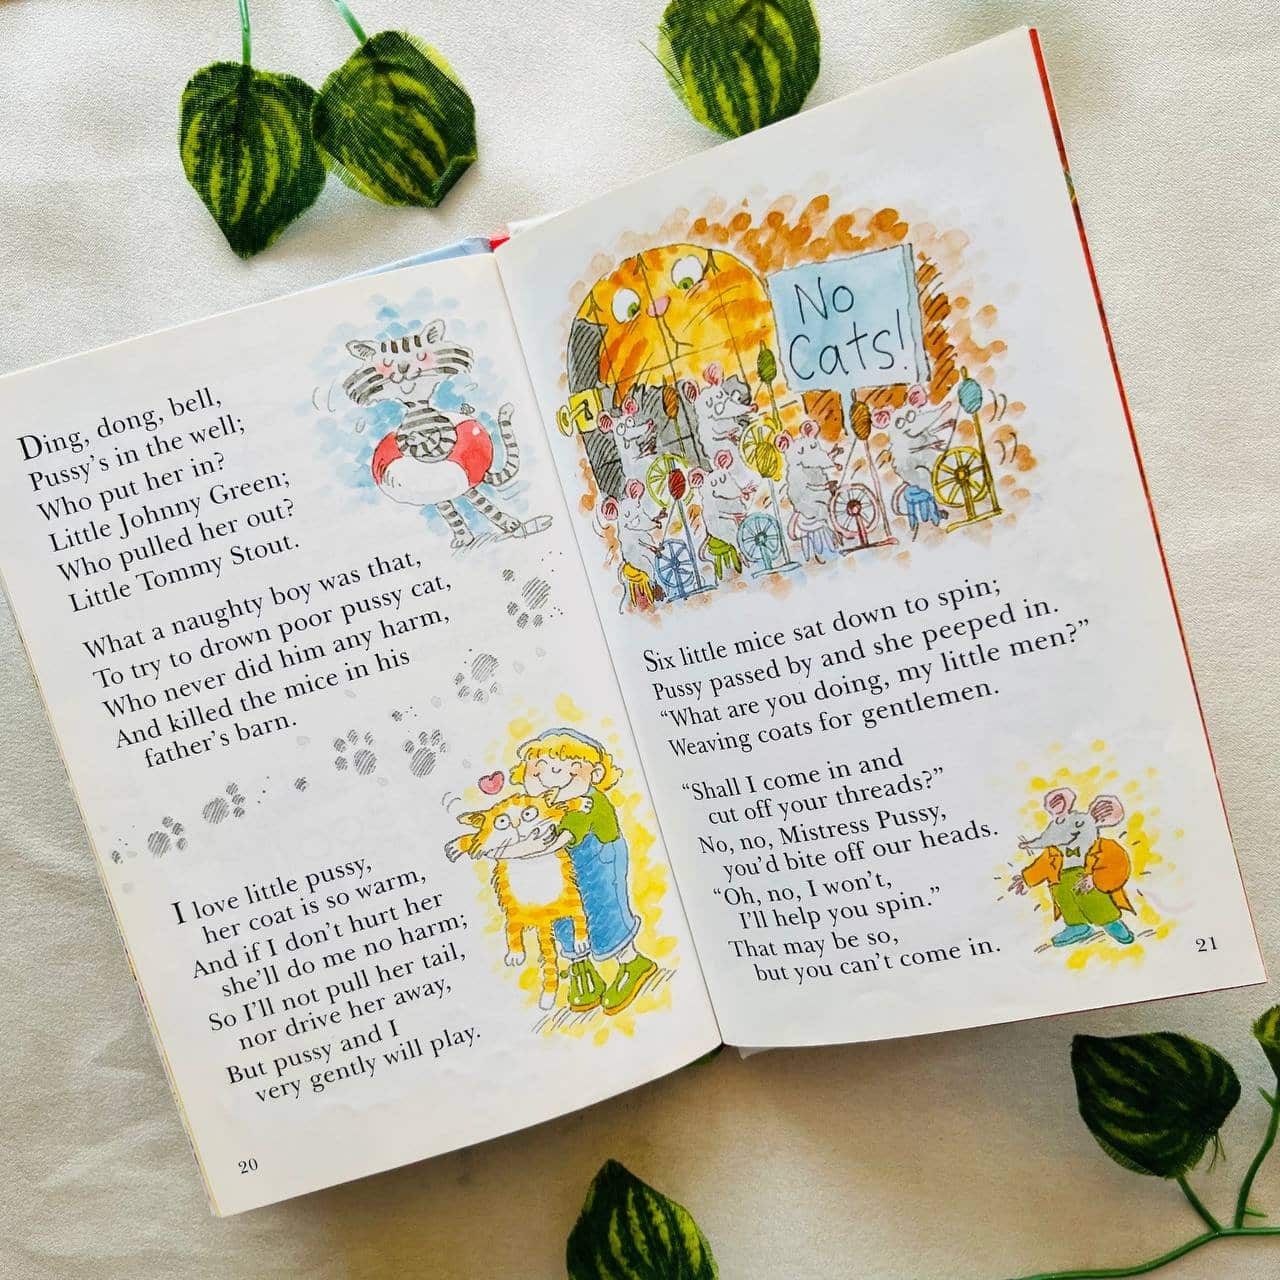 Ding, dong, bell,
Pussy's in the well;
Who put her in?
Little Johnny Green;
Who pulled her out?
Little Tommy Stout.
What a naughty boy was that,
To try to drown poor pussy cat,
Who never did him any harm,
And killed the mice in his
father's barn.
I love little pussy,
her coat is so warm,
And if I don't hurt her
she'll do me no harm;
So I'll not pull her tail,
nor drive her away,
But pussy and I
very gently will play.
20
No
Cats!
Six little mice sat down to spin;
Pussy passed by and she peeped in.
“What are you doing, my little men?”
Weaving coats for gentlemen.
“Shall I come in and
cut off your threads?”
No, no, Mistress Pussy,
you'd bite off our heads.
“Oh, no, I won't,
I'll help you spin.”
That may be so,
but you can't come in.
21